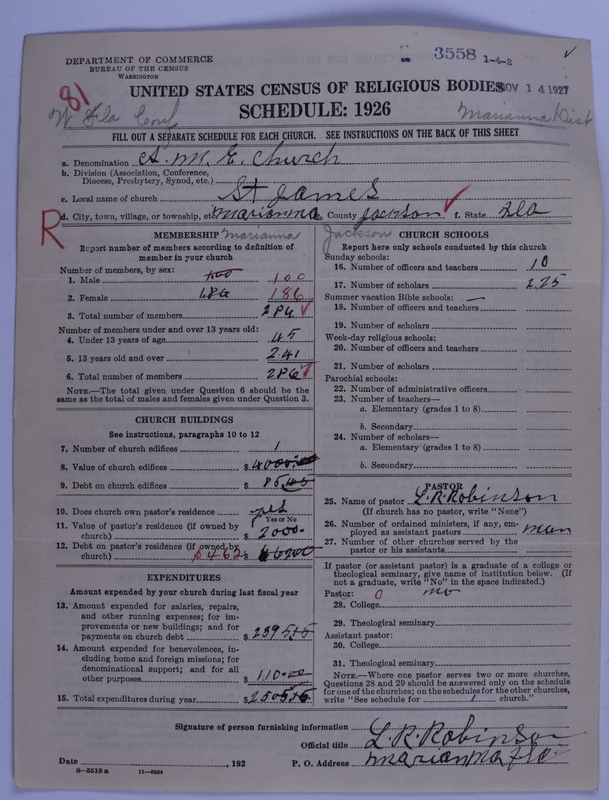 3558 1-4-2
DEPARTMENT OF COMMERCE
BUREAU OF THE CENSUS
WASHINGTON
UNITED STATES CENSUS OF RELIGIOUS BODIES
NOV 14 1927
SCHEDULE: 1926
81
W Fla Conf
Marianna Dist
FILL OUT A SEPARATE SCHEDULE FOR EACH CHURCH. SEE INSTRUCTIONS ON THE BACK OF THIS SHEET
a. Denomination A. M. E. Church
b. Division (Association, Conference,
Diocese, Presbytery, Synod, etc.)
c. Local name of church St James
d. City, town, village, or township, etc. Marianna County Jackson f. State Fla
R
MEMBERSHIP Marianna
Report number of members according to definition of
member in your church
Number of members, by sex:
1. Male 100 100
2. Female 186 186
3. Total number of members 286
Number of members under and over 13 years old:
4. Under 13 years of age 45
5. 13 years old and over 241
6. Total number of members 286
NOTE.—The total given under Question 6 should be the
same as the total of males and females given under Question 3.
CHURCH BUILDINGS
See instructions, paragraphs 10 to 12
7. Number of church edifices 1
8. Value of church edifices $
9. Debt on church edifices $
10. Does church own pastor's residence yes
Yes or No
11. Value of pastor's residence (if owned by
church) $ 2000.
12. Debt on pastor's residence (if owned by
church) $
EXPENDITURES
Amount expended by your church during last fiscal year
13. Amount expended for salaries, repairs,
and other running expenses; for im-
provements or new buildings; and for
payments on church debt $
14. Amount expended for benevolences, in-
cluding home and foreign missions; for
denominational support; and for all
other purposes $ 110.00
15. Total expenditures during year $
Jackson CHURCH SCHOOLS
Report here only schools conducted by this church
Sunday schools:
16. Number of officers and teachers 10
17. Number of scholars 225
Summer vacation Bible schools: —
18. Number of officers and teachers
19. Number of scholars
Week-day religious schools:
20. Number of officers and teachers
21. Number of scholars
Parochial schools:
22. Number of administrative officers
23. Number of teachers—
a. Elementary (grades 1 to 8)
b. Secondary
24. Number of scholars—
a. Elementary (grades 1 to 8)
b. Secondary
PASTOR
25. Name of pastor L. R. Robinson
(If church has no pastor, write "None")
26. Number of ordained ministers, if any, em-
ployed as assistant pastors
27. Number of other churches served by the
pastor or his assistants
If pastor (or assistant pastor) is a graduate of a college or
theological seminary, give name of institution below. (If
not a graduate, write "No" in the space indicated.)
Pastor: 0 no
28. College
29. Theological seminary
Assistant pastor:
30. College
31. Theological seminary
NOTE.—Where one pastor serves two or more churches,
Questions 28 and 29 should be answered only on the schedule
for one of the churches; on the schedules for the other churches,
write "See schedule for church."
Signature of person furnishing information
Official title L. R. Robinson
Date , 192 P. O. Address Marianna Fla
6-5518 a 11-9054